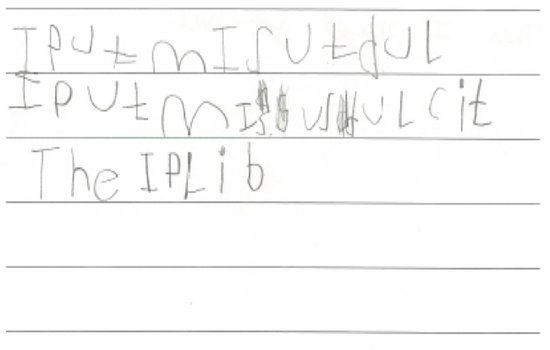 I put mISutduL
I put mIS usuLcit
The IPLib